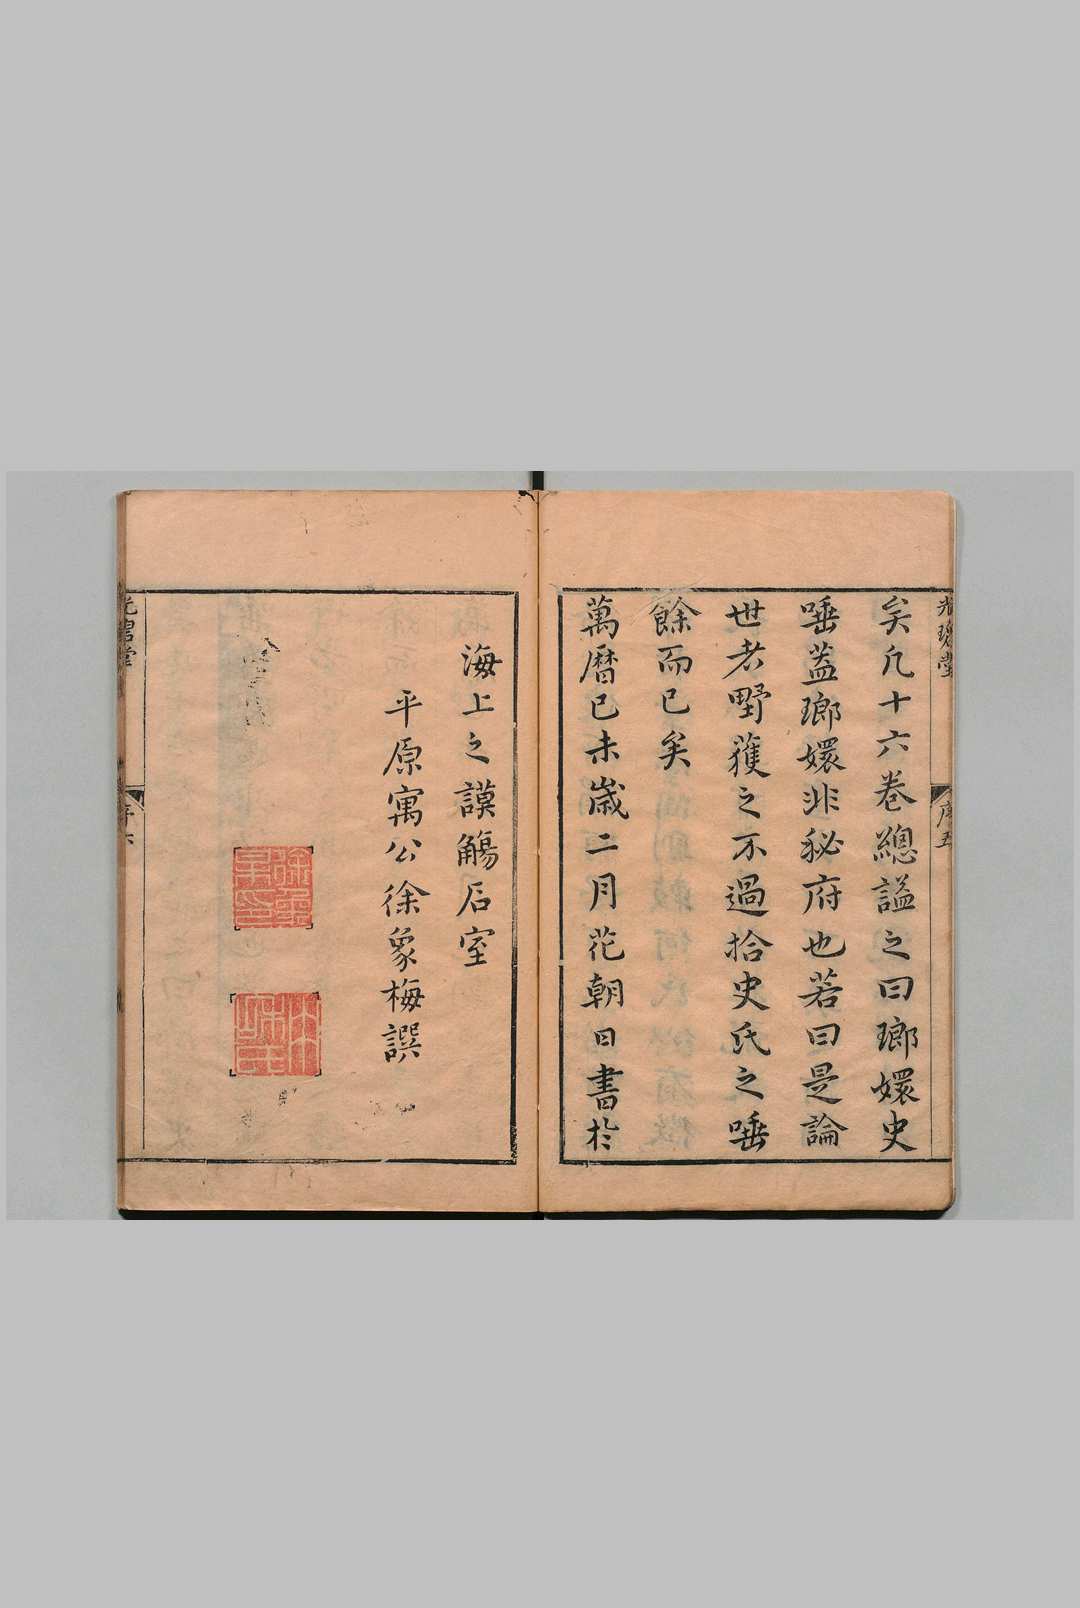 矣凡十六卷總謚之曰瑯嬛史
唾蓋瑯嬛非秘府也若曰是論
世者野蒦之不過拾史氏之唾
餘而已矣
萬曆己未歲二月花朝日書於
海上之謨觴石室
平原寓公徐象梅譔
序五
序六
徐象
梅印